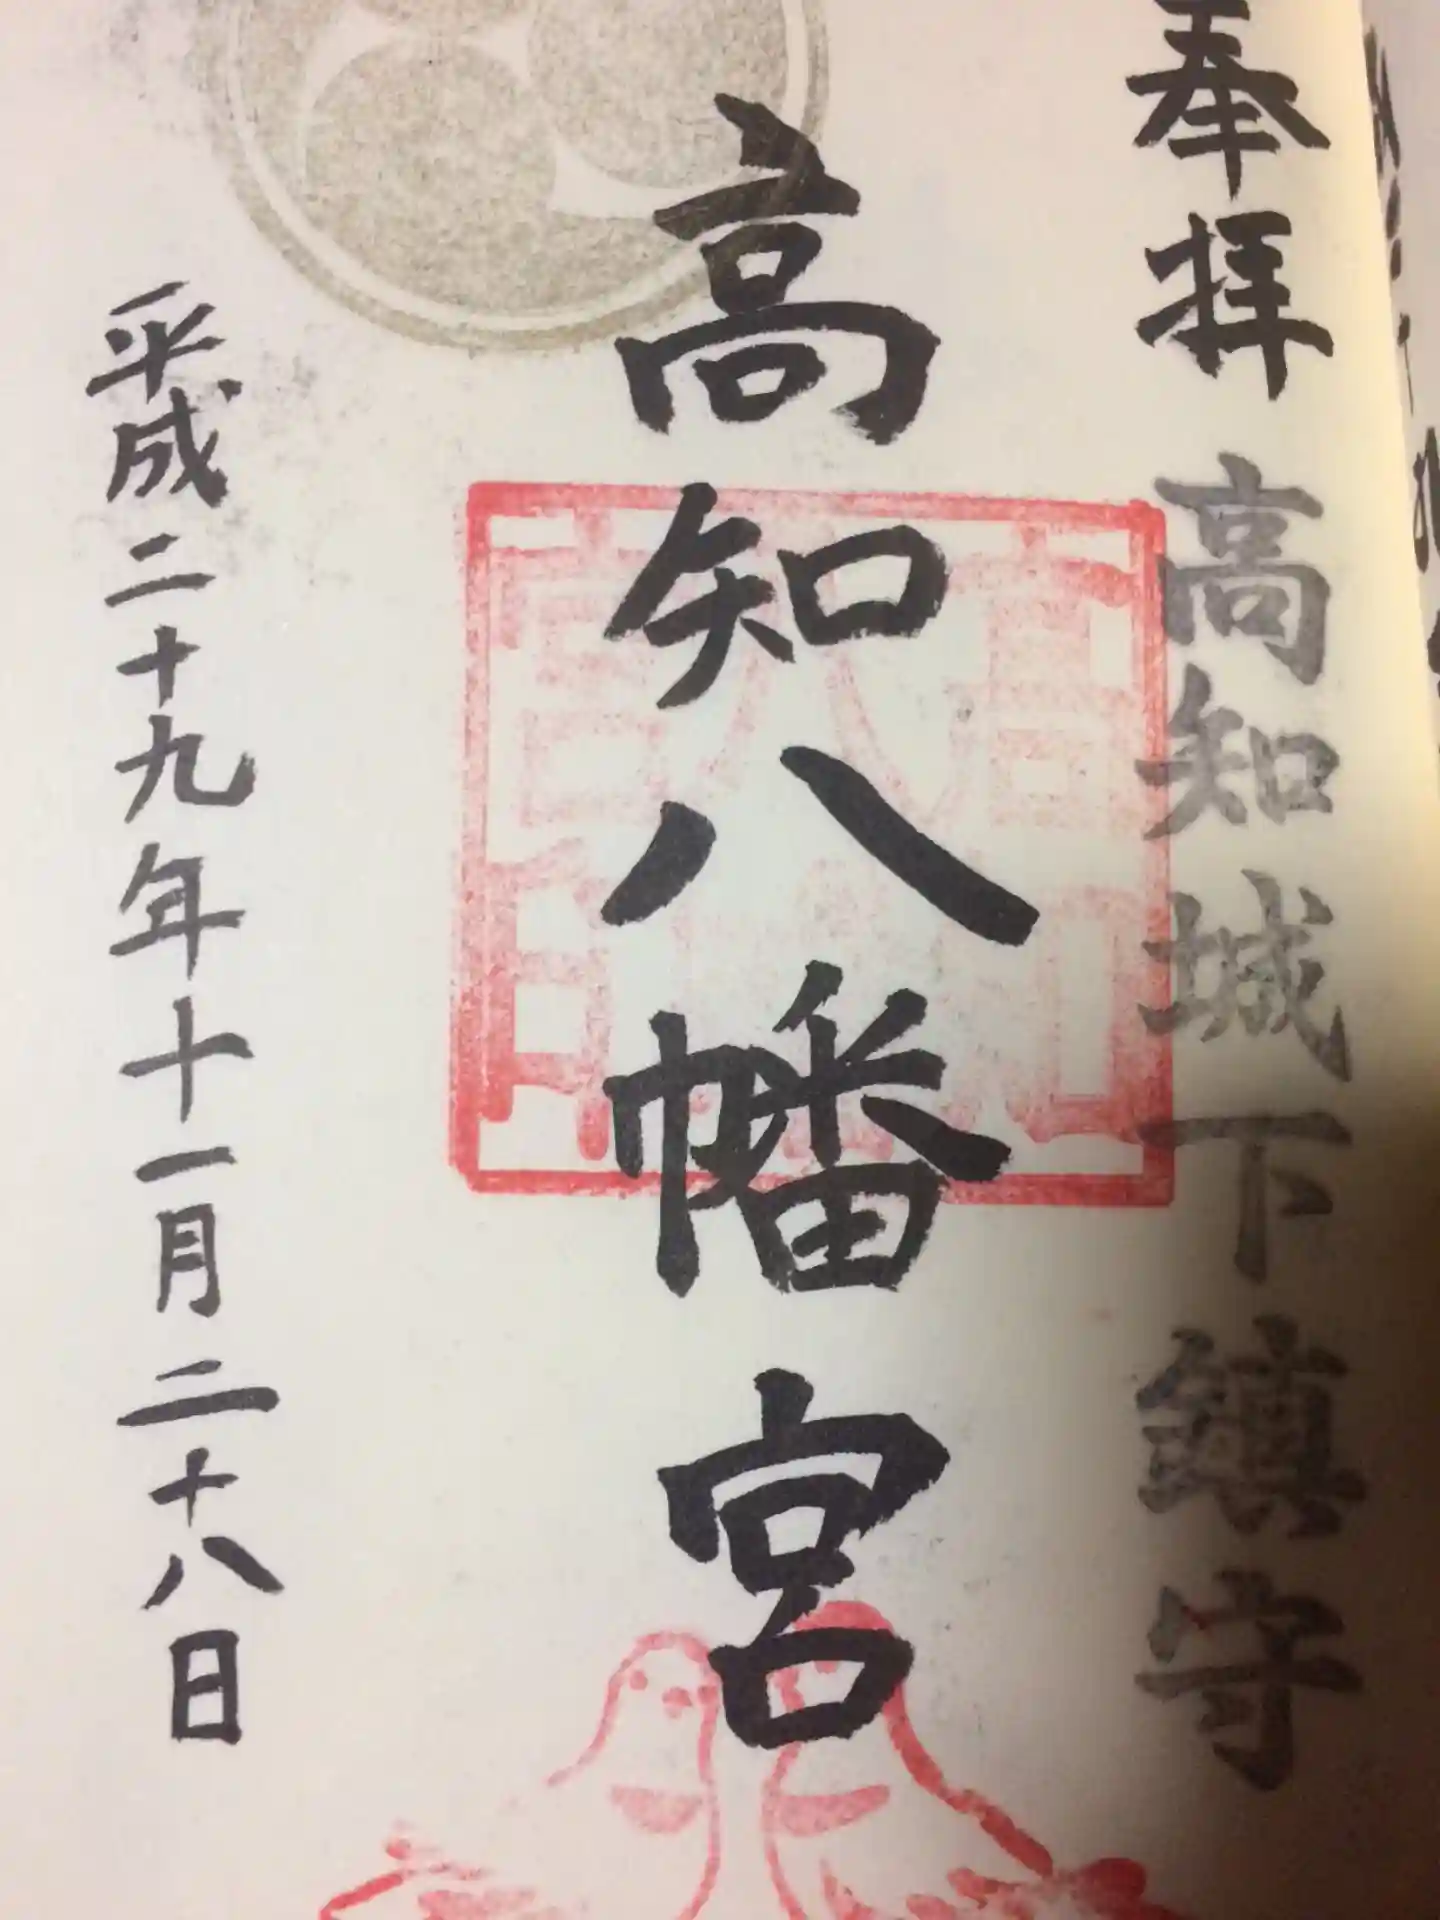 奉拝 高知城下鎮守
高知八幡宮
平成二十九年十一月二十八日